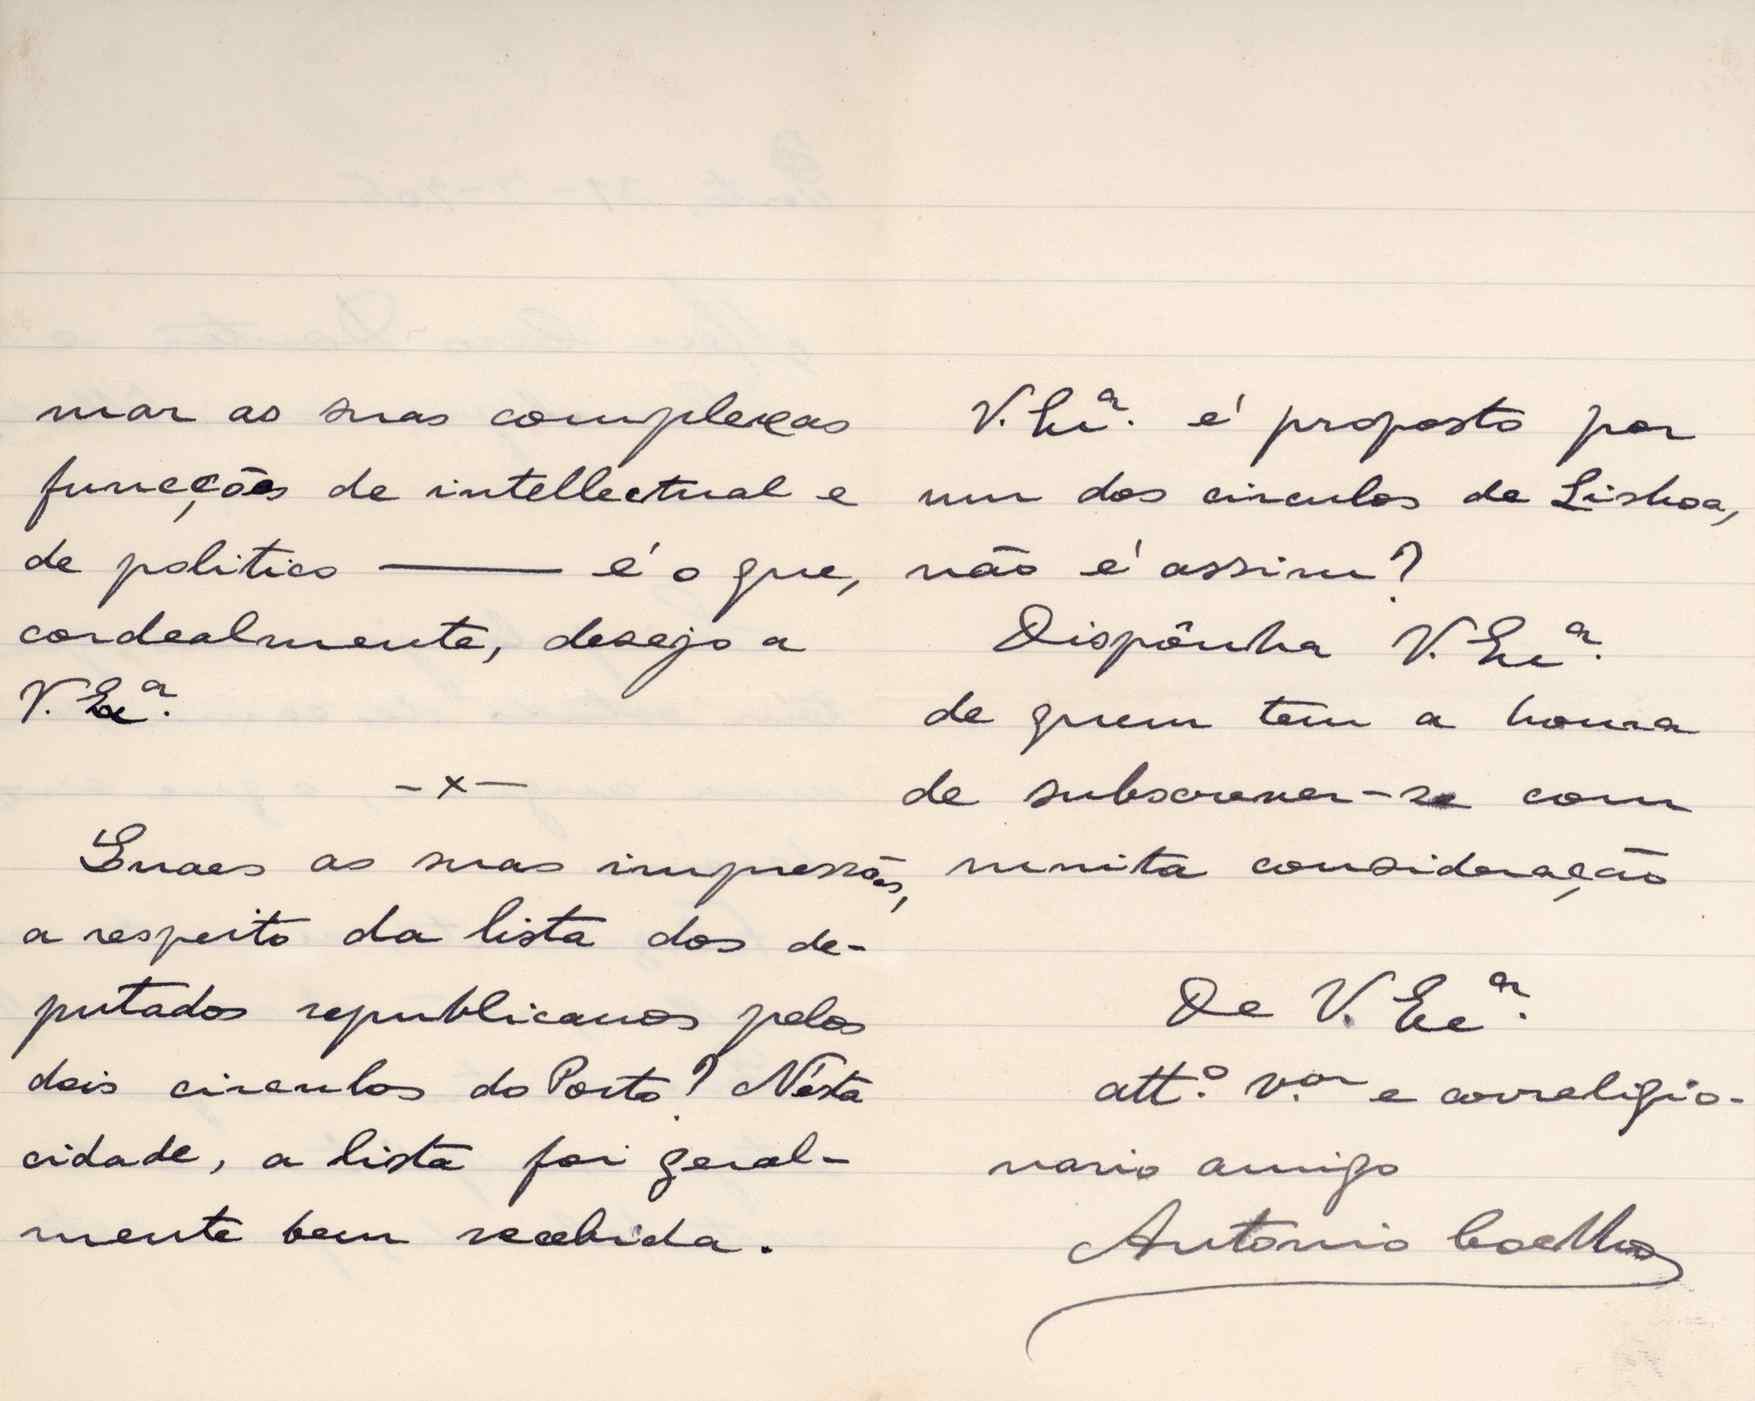 mar as suas complexas
funcções de intellectual e
de politico —— é o que,
cordealmente, desejo a
V. Exª.
— x —
Quaes as suas impressões,
a respeito da lista dos de-
putados republicanos pelos
dois circulos do Porto? Nésta
cidade, a lista foi geral-
mente bem recebida.
V. Exª. é proposto por
um dos circulos de Lisboa,
não é assim?
Dispônha V. Exª.
de quem tem a honra
de subscrever-se com
muita consideração
De V. Exª.
attº. v.ᵒʳ e correligio-
nario amigo
Antonio Coelho